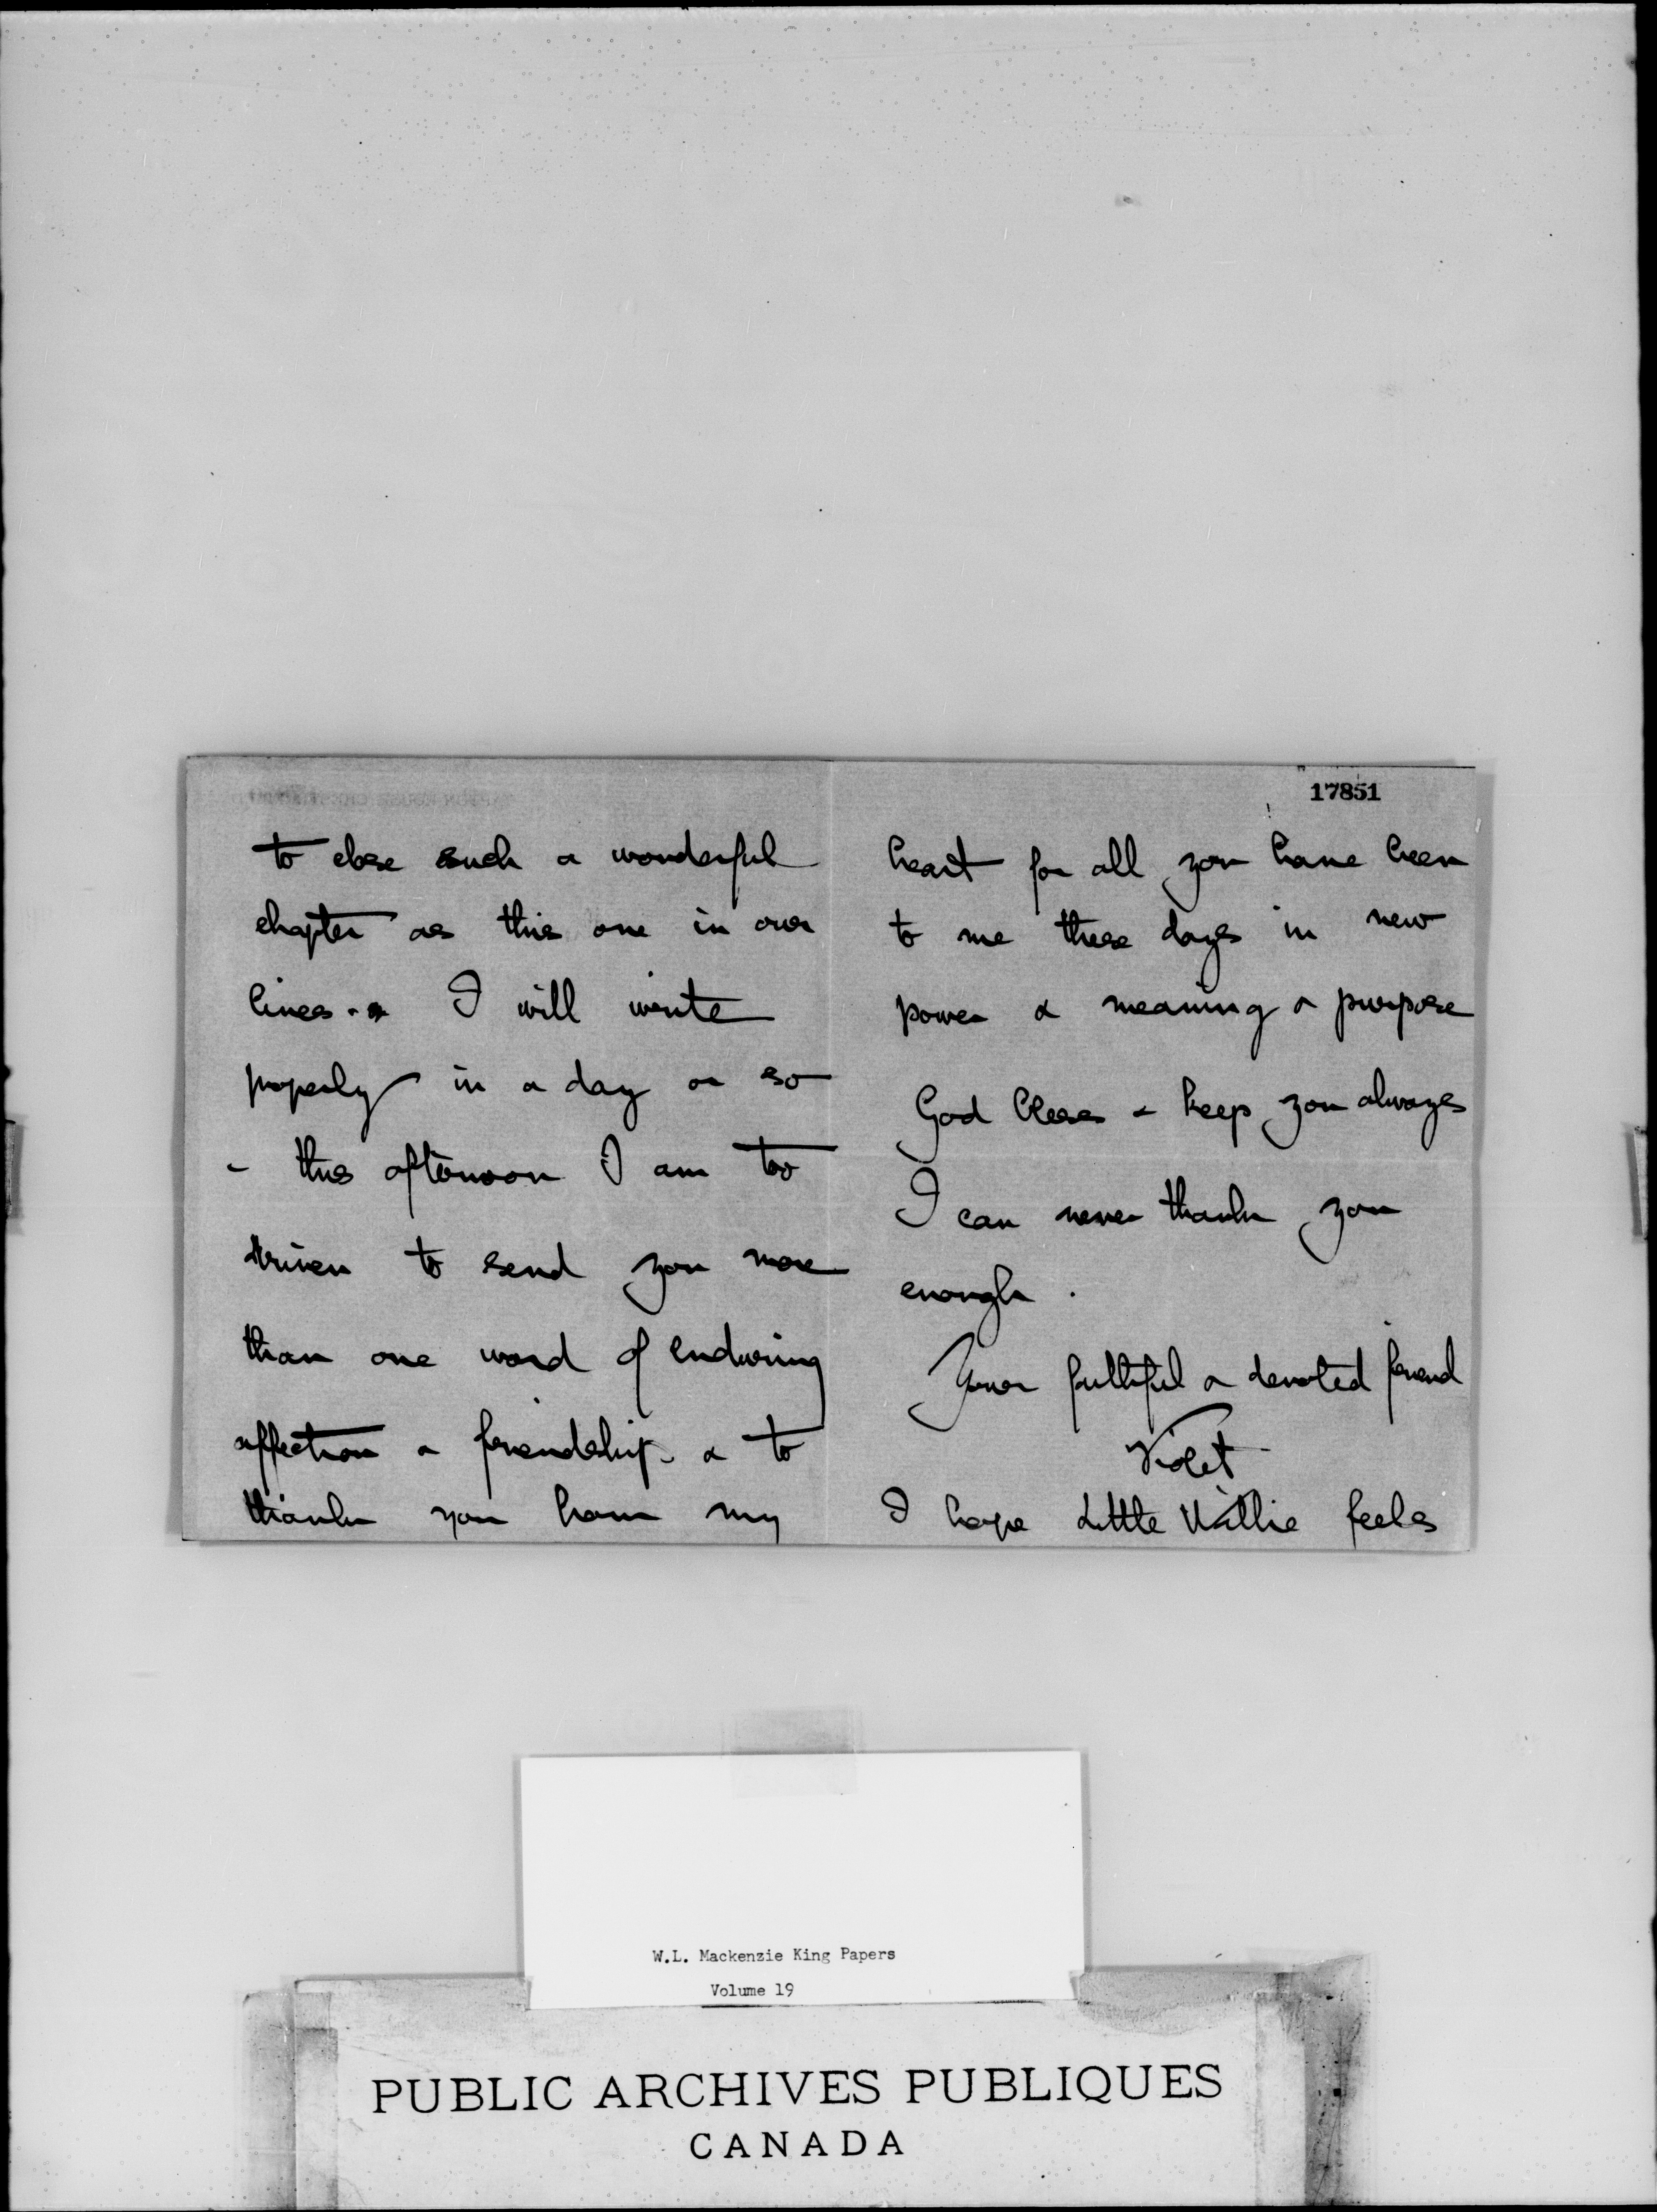 to close such a wonderful
chapter as this one in our
lives. I will write
properly in a day or so
- this afternoon I am too
driven to send you more
than one word of enduring
affection & friendship & to
thank you from my
17851
heart for all you have been
to me these days in new
power & meaning & purpose
God bless & keep you always
I can never thank you
enough.
Your faithful & devoted friend
Violet
I hope Little Willie feels
W.L. Mackenzie King Papers
Volume 19
PUBLIC ARCHIVES PUBLIQUES
CANADA